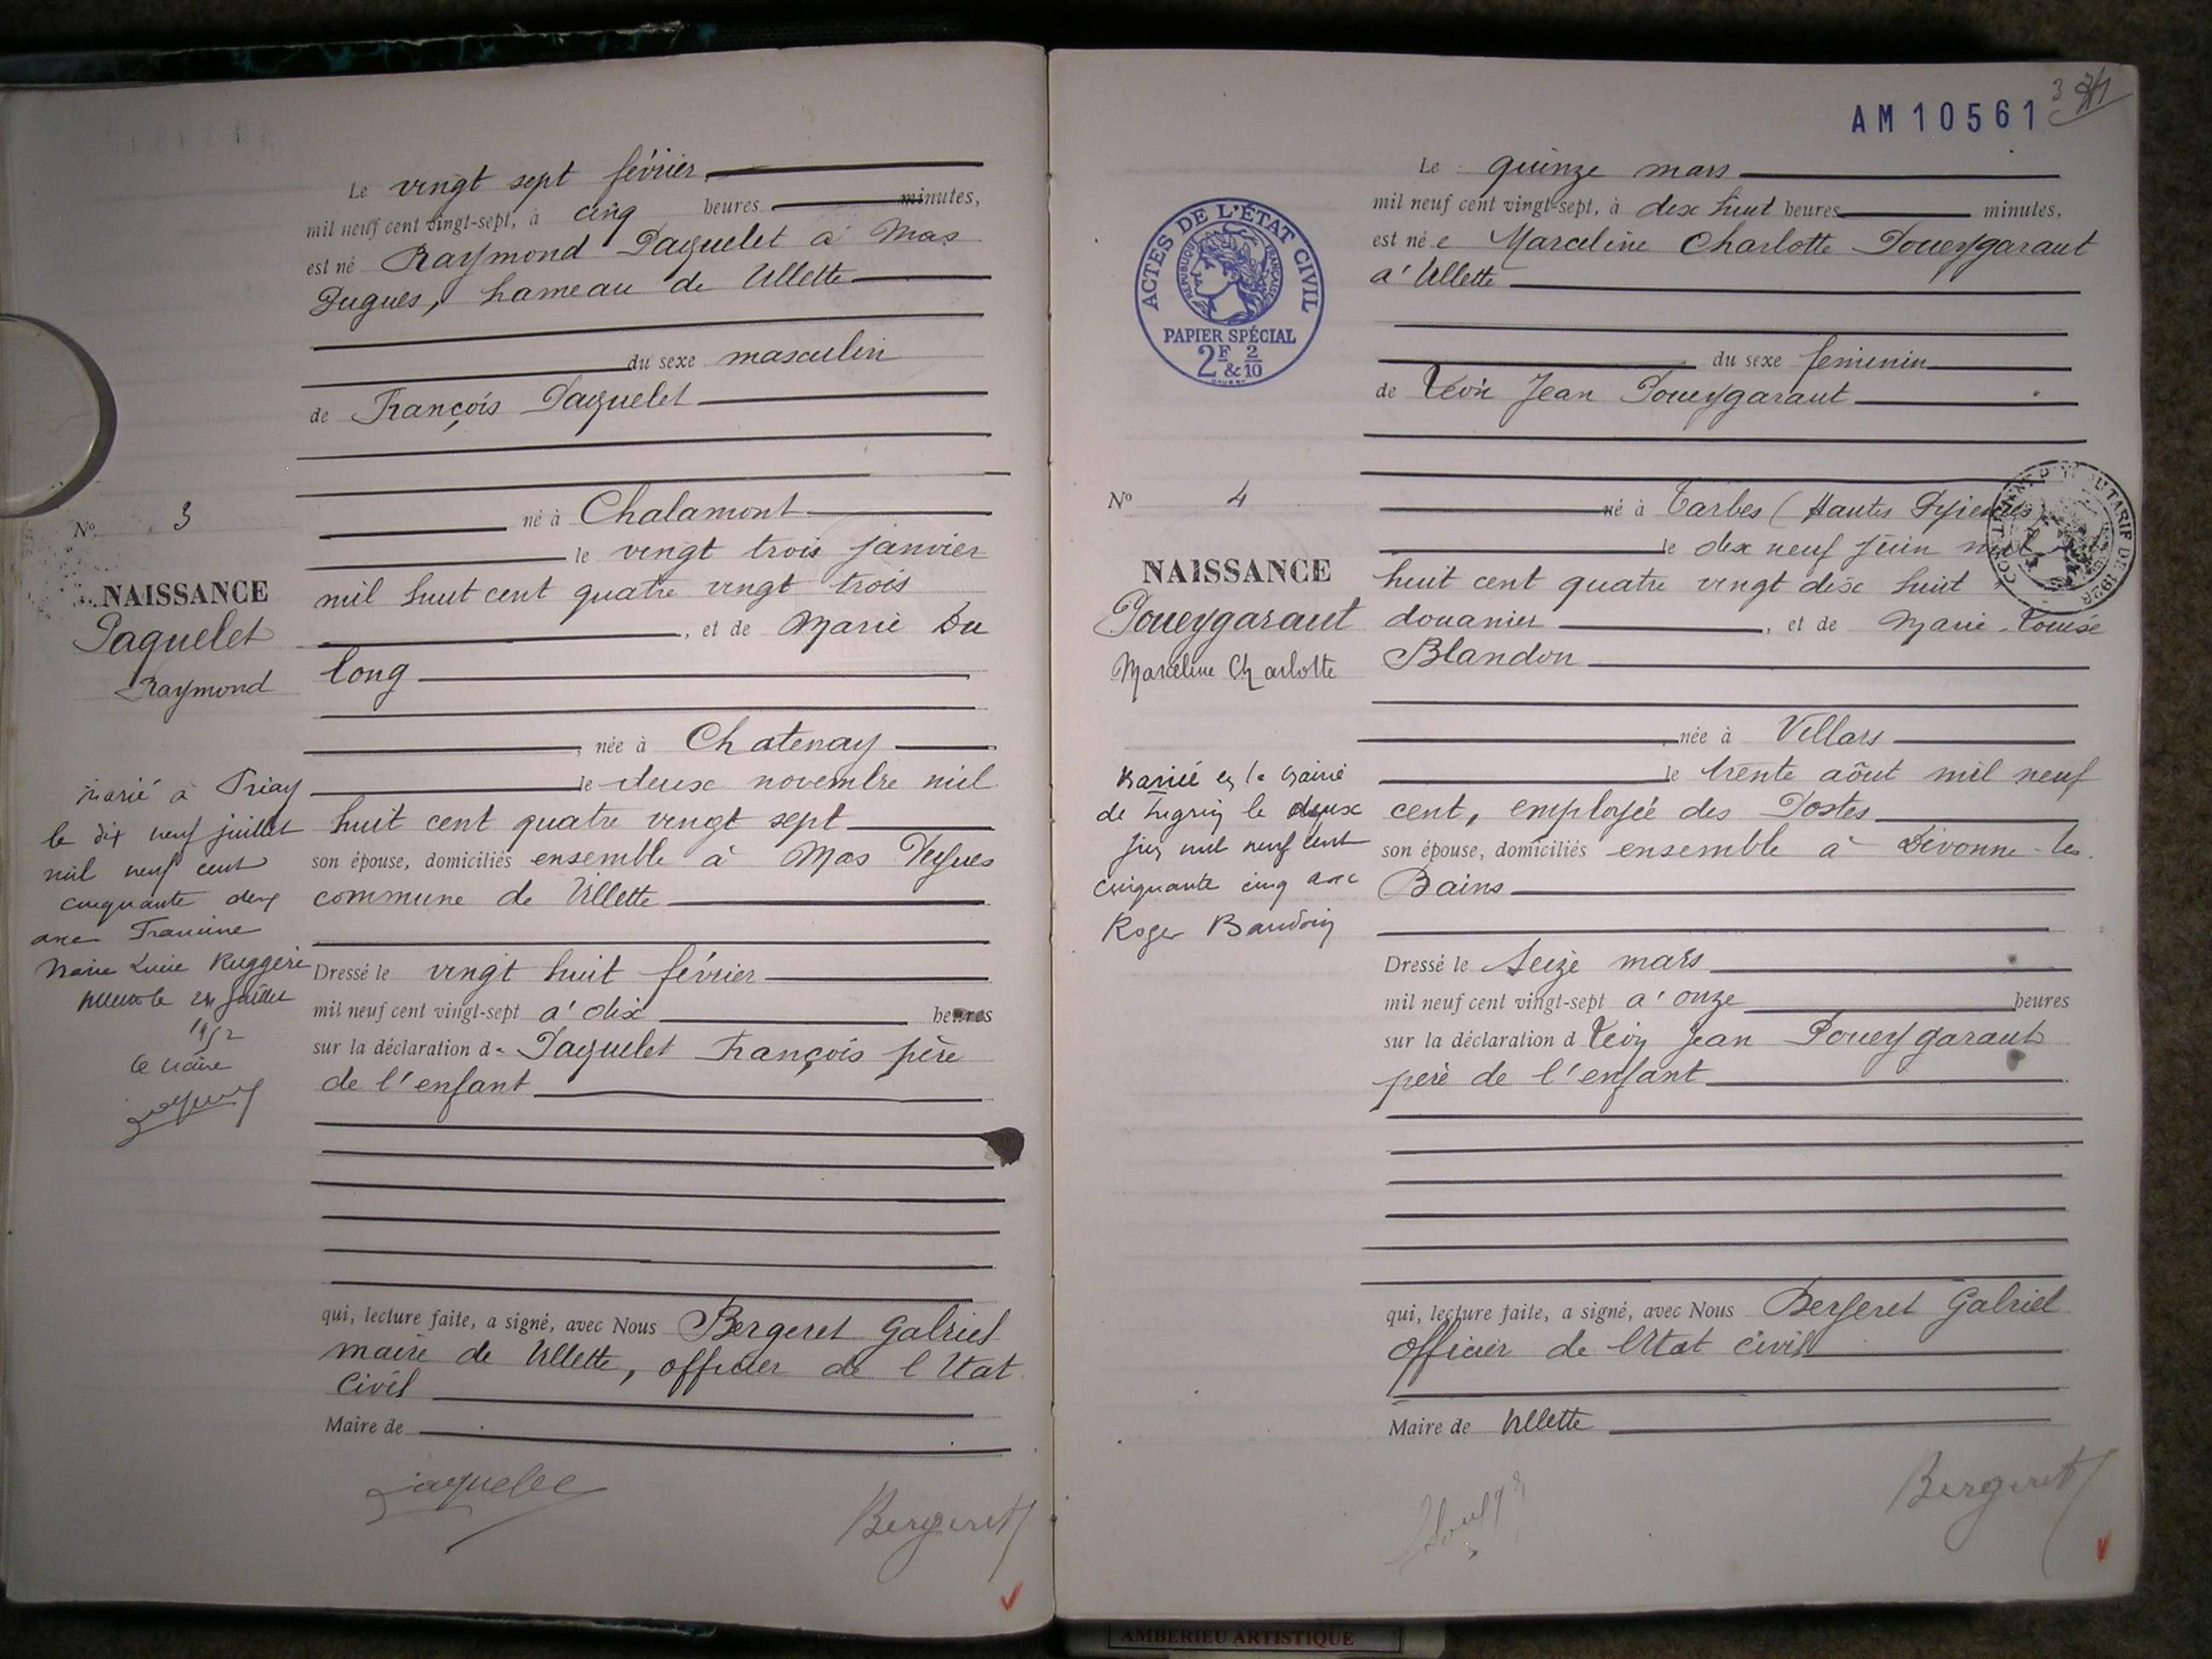 Le vingt sept février
mil neuf cent vingt-sept, à cinq heures minutes,
est né Raymond Paquelet à Mas
Pugues, hameau de Villette
du sexe masculin
de François Paquelet
né à Chalamont
le vingt trois janvier
mil huit cent quatre vingt trois
, et de Marie Du
long
, née à Chatenay
le deux novembre mil
huit cent quatre vingt sept
son épouse, domiciliés ensemble à Mas Pugues
commune de Villette
Dressé le vingt huit février
mil neuf cent vingt-sept à dix heures
sur la déclaration de Paquelet François père
de l'enfant
qui, lecture faite, a signé, avec Nous Bergeret Gabriel
maire de Villette, officier de l'Etat
Civil
Maire de
Paquelet
Bergeret
No 3
NAISSANCE
Paquelet
Raymond
Marié à Priay
le dix neuf juillet
mil neuf cent
cinquante deux
avec Francine
Marie Lucie Ruggeri
le 24 Juillet
1952
Le Maire
AM10561
3
Le quinze mars
mil neuf cent vingt-sept, à dix huit heures minutes,
est née Marceline Charlotte Poueygaraut
à Villette
du sexe feminin
de Léon Jean Poueygaraut
né à Tarbes (Hautes Pyrenées)
le dix neuf Juin mil
huit cent quatre vingt dix huit
douanier , et de Marie-Louise
Blandon
née à Villars
le trente août mil neuf
cent, employée des Postes
son épouse, domiciliés ensemble à Divonne-les
Bains
Dressé le Seize mars
mil neuf cent vingt-sept à onze heures
sur la déclaration d Léon Jean Poueygaraut
père de l'enfant
qui, lecture faite, a signé, avec Nous Bergeret Gabriel
officier de l'Etat civil
Maire de Villette
Bergeret
ACTES DE L'ÉTAT CIVIL
RÉPUBLIQUE FRANÇAISE
PAPIER SPÉCIAL
2F & 2/10
No 4
NAISSANCE
Poueygaraut
Marceline Charlotte
Mariée à la Mairie
de Lugrin le deux
Juin mil neuf cent
cinquante cinq avec
Roger Baudoin
AMBERIEU ARTISTIQUE